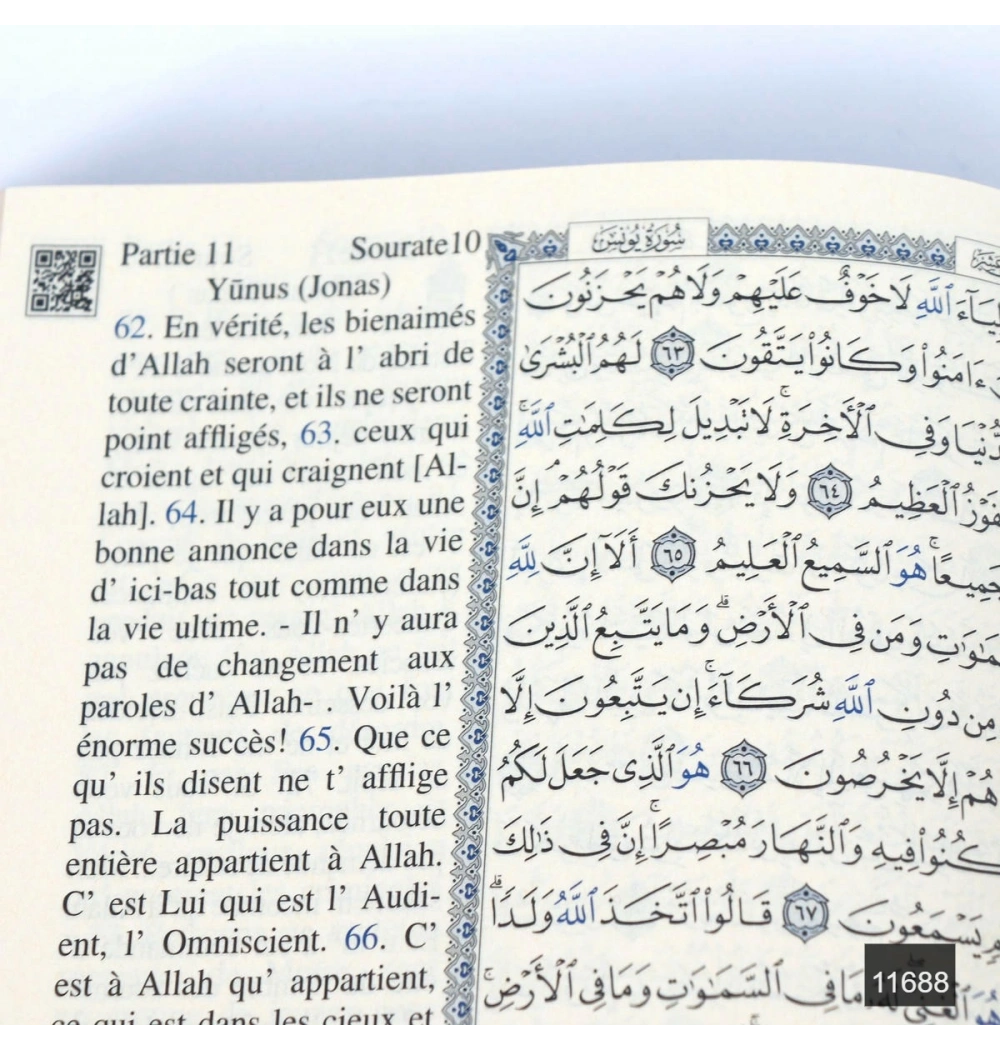 Partie 11 Sourate10
Yūnus (Jonas)
62. En vérité, les bienaimés
d'Allah seront à l' abri de
toute crainte, et ils ne seront
point affligés, 63. ceux qui
croient et qui craignent [Al-
lah]. 64. Il y a pour eux une
bonne annonce dans la vie
d' ici-bas tout comme dans
la vie ultime. - Il n' y aura
pas de changement aux
paroles d' Allah- . Voilà l'
énorme succès! 65. Que ce
qu' ils disent ne t' afflige
pas. La puissance toute
entière appartient à Allah.
C' est Lui qui est l' Audi-
ent, l' Omniscient. 66. C'
est à Allah qu' appartient,
ce qui est dans les cieux et
سُورَةُ يُونُسَ
ٱللَّهِ لَا خَوْفٌ عَلَيْهِمْ وَلَا هُمْ يَحْزَنُونَ
ءَامَنُوا۟ وَكَانُوا۟ يَتَّقُونَ ٦٣ لَهُمُ ٱلْبُشْرَىٰ
وَفِى ٱلْأَخِرَةِ ۚ لَا تَبْدِيلَ لِكَلِمَـٰتِ ٱللَّهِ ۚ
ٱلْعَظِيمُ ٦٤ وَلَا يَحْزُنكَ قَوْلُهُمْ ۘ إِنَّ
هُوَ ٱلسَّمِيعُ ٱلْعَلِيمُ ٦٥ أَلَآ إِنَّ لِلَّهِ
وَمَن فِى ٱلْأَرْضِ ۗ وَمَا يَتَّبِعُ ٱلَّذِينَ
مِن دُونِ ٱللَّهِ شُرَكَآءَ ۚ إِن يَتَّبِعُونَ إِلَّا
هُمْ إِلَّا يَخْرُصُونَ ٦٦ هُوَ ٱلَّذِى جَعَلَ لَكُمُ
فِيهِ وَٱلنَّهَارَ مُبْصِرًا ۚ إِنَّ فِى ذَٰلِكَ
يَسْمَعُونَ ٦٧ قَالُوا۟ ٱتَّخَذَ ٱللَّهُ وَلَدًا ۗ
مَا فِى ٱلسَّمَـٰوَٰتِ وَمَا فِى ٱلْأَرْضِ ۚ
11688